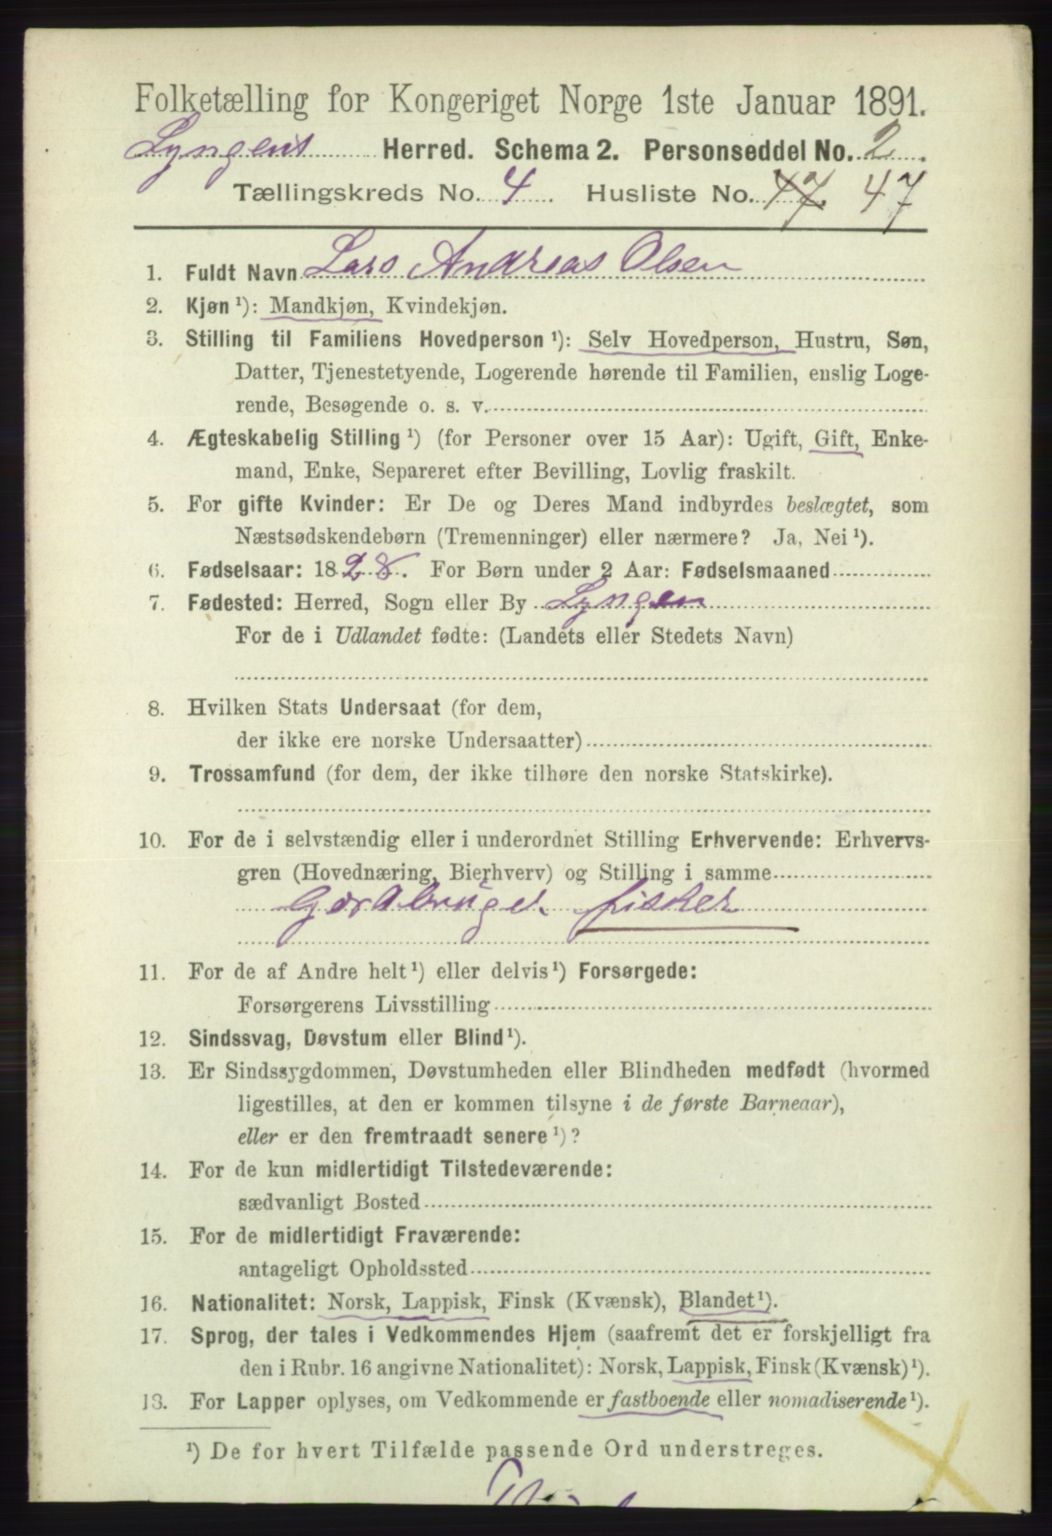 Folketælling for Kongeriget Norge 1ste Januar 1891.
Lyngens Herred. Schema 2. Personseddel No. 2.
Tællingskreds No. 4. Husliste No. 47. 47
1. Fuldt Navn Lars Andreas Olsen
2. Kjøn ¹): Mandkjøn, Kvindekjøn.
3. Stilling til Familiens Hovedperson ¹): Selv Hovedperson, Hustru, Søn,
Datter, Tjenestetyende, Logerende hørende til Familien, enslig Loge-
rende, Besøgende o. s. v.
4. Ægteskabelig Stilling ¹) (for Personer over 15 Aar): Ugift, Gift, Enke-
mand, Enke, Separeret efter Bevilling, Lovlig fraskilt.
5. For gifte Kvinder: Er De og Deres Mand indbyrdes beslægtet, som
Næstsødskendebørn (Tremenninger) eller nærmere? Ja, Nei ¹).
6. Fødselsaar: 1828. For Børn under 2 Aar: Fødselsmaaned
7. Fødested: Herred, Sogn eller By Lyngen
For de i Udlandet fødte: (Landets eller Stedets Navn)
8. Hvilken Stats Undersaat (for dem,
der ikke ere norske Undersaatter)
9. Trossamfund (for dem, der ikke tilhøre den norske Statskirke).
10. For de i selvstændig eller i underordnet Stilling Erhvervende: Erhvervs-
gren (Hovednæring, Bierhverv) og Stilling i samme
Gardbruger fisker
11. For de af Andre helt ¹) eller delvis ¹) Forsørgede:
Forsørgerens Livsstilling
12. Sindssvag, Døvstum eller Blind ¹).
13. Er Sindssygdommen, Døvstumheden eller Blindheden medfødt (hvormed
ligestilles, at den er kommen tilsyne i de første Barneaar),
eller er den fremtraadt senere ¹)?
14. For de kun midlertidigt Tilstedeværende:
sædvanligt Bosted
15. For de midlertidigt Fraværende:
antageligt Opholdssted
16. Nationalitet: Norsk, Lappisk, Finsk (Kvænsk), Blandet ¹).
17. Sprog, der tales i Vedkommendes Hjem (saafremt det er forskjelligt fra
den i Rubr. 16 angivne Nationalitet): Norsk, Lappisk, Finsk (Kvænsk) ¹).
13. For Lapper oplyses, om Vedkommende er fastboende eller nomadiserende ¹).
¹) De for hvert Tilfælde passende Ord understreges.